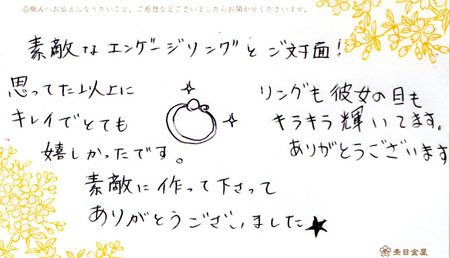 ◎職人へお伝えになりたいこと。ご感想などございましたらお聞かせくださいませ。
素敵なエンゲージリングとご対面！
思ってた以上に
キレイでとても
嬉しかったです。
リングも彼女の目も
キラキラ輝いてます。
ありがとうございます
素敵に作って下さって
ありがとうございました★
杢目金屋